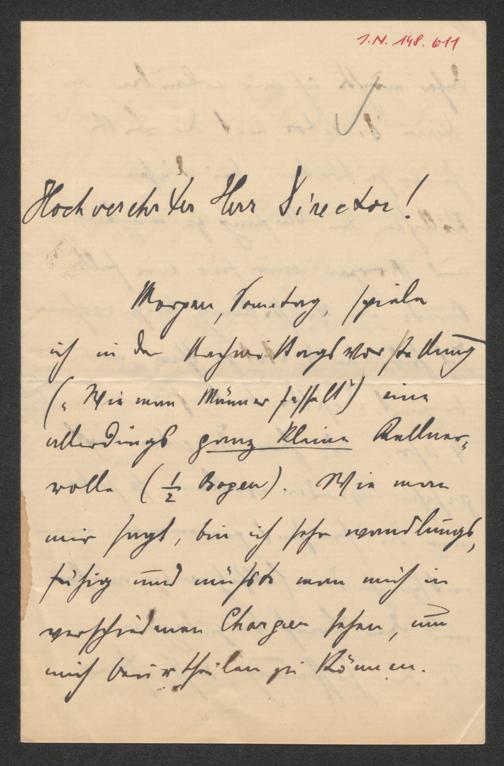 I.N. 148.611
Hochverehrter Herr Director!
Morgen, Sonntag, spiele
ich in der Nachmittagsvorstellung
(„Wie man Männer fesselt“) eine
allerdings ganz kleine Kellner-
rolle (½ Bogen). Wie man
mir sagt, bin ich sehr wandlungs-
fähig und müßte man mich in
verschiedenen Chargen sehen, um
mich beurtheilen zu können.